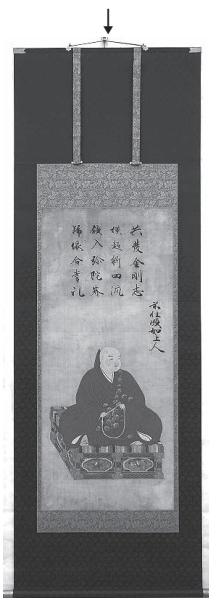 共發金剛志
横超断四流
願入弥陀界
歸依合掌礼
前住顕如上人